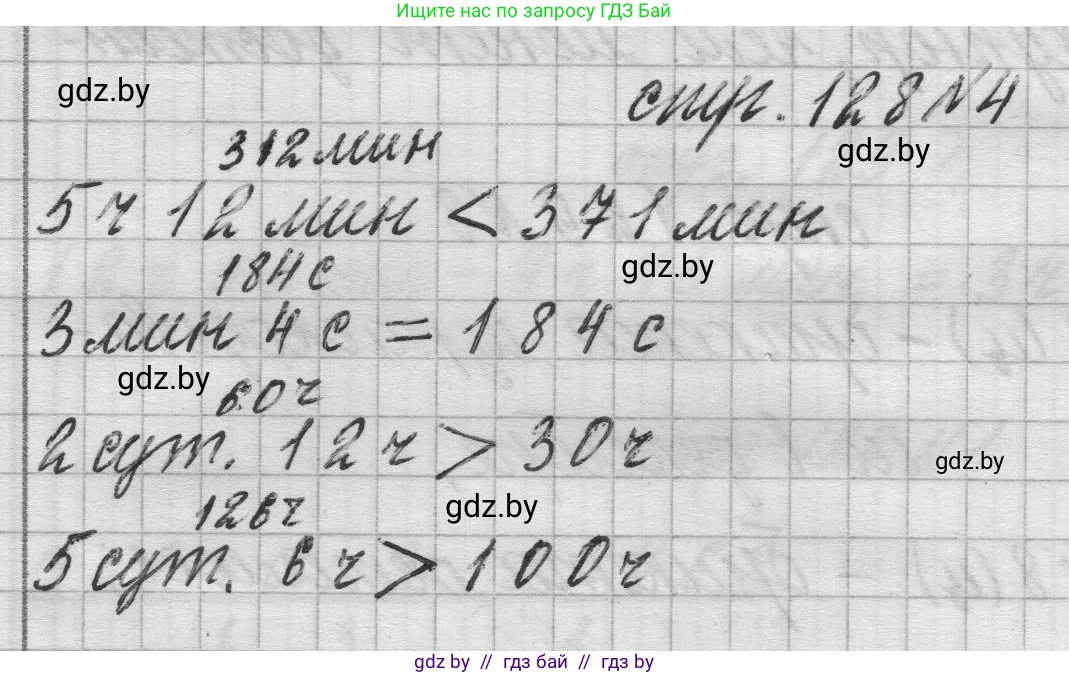 Ищите нас по запросу ГДЗ Бай
gdz.by
стр. 128 №4
gdz.by
312 мин
5 ч 12 мин < 371 мин
184 с
gdz.by
3 мин 4 с = 184 с
gdz.by
60 ч
2 сут. 12 ч > 30 ч
gdz.by
126 ч
gdz.by
5 сут. 6 ч > 100 ч
gdz by // гдз бай // gdz by